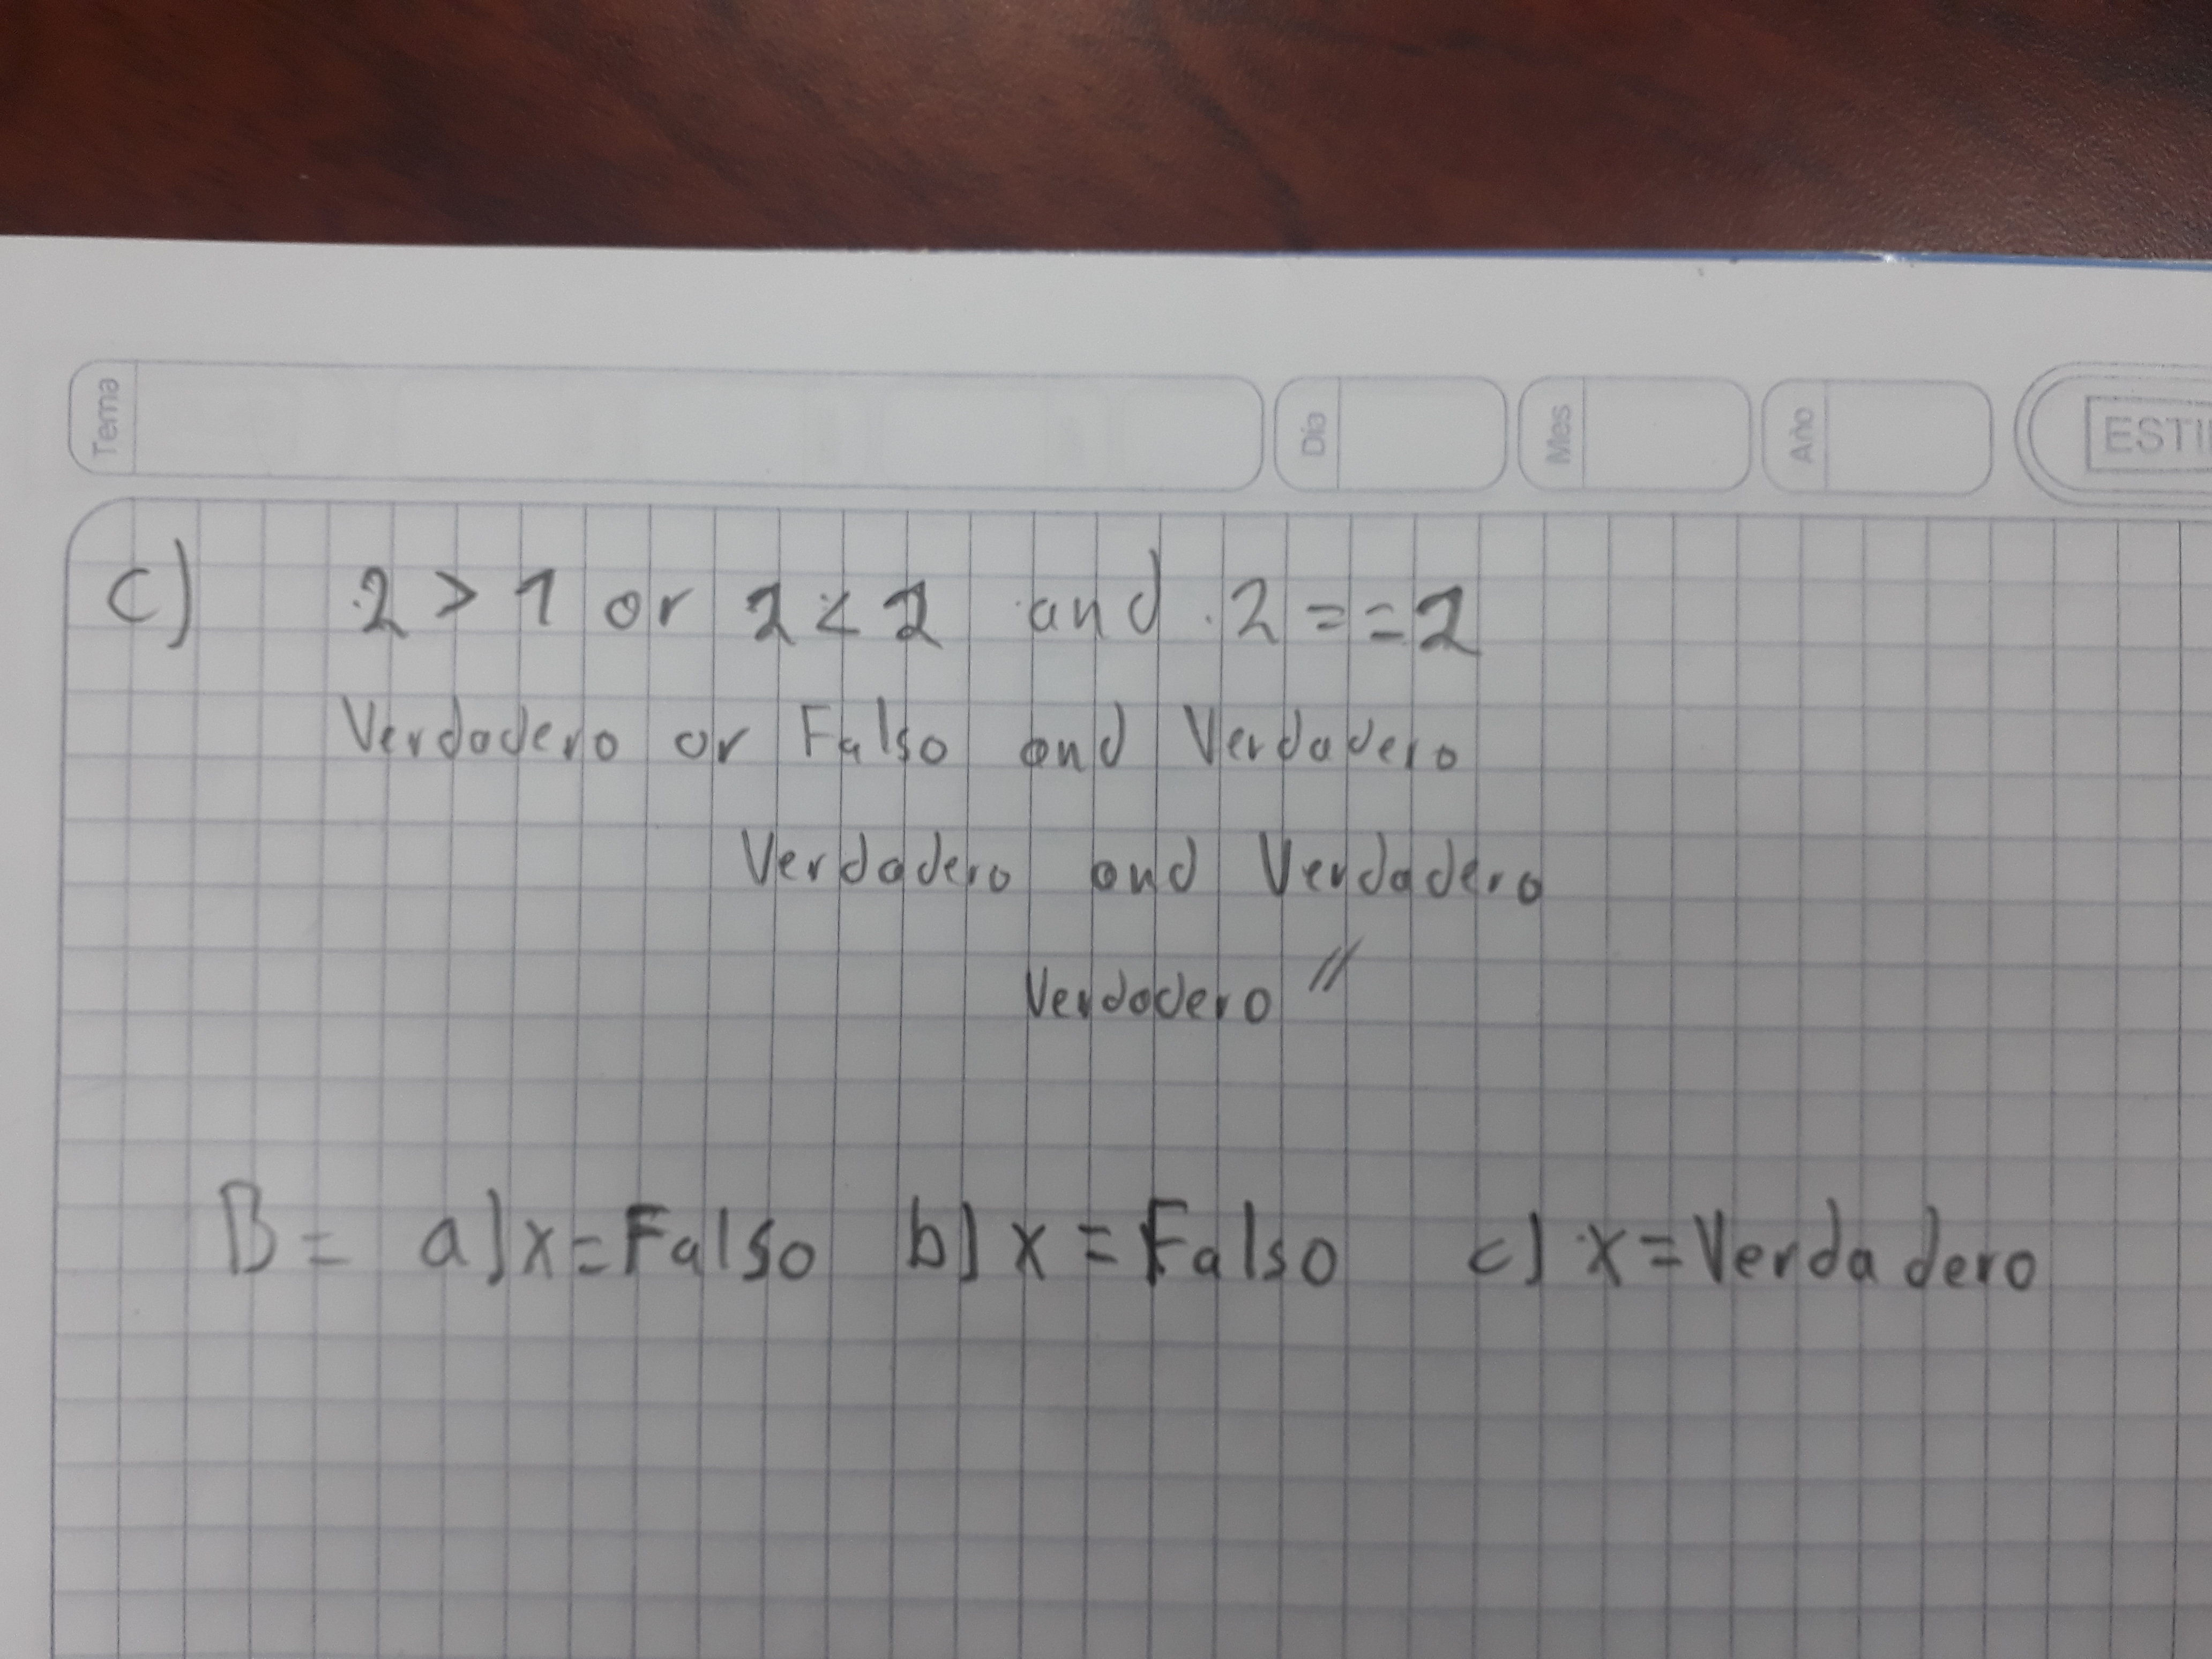 Tema Día Mes Año
C) 2 > 1 or 2 < 2 and 2 == 2
Verdadero or Falso and Verdadero
Verdadero and Verdadero
Verdadero //
B = a) x = Falso b) x = Falso c) x = Verdadero